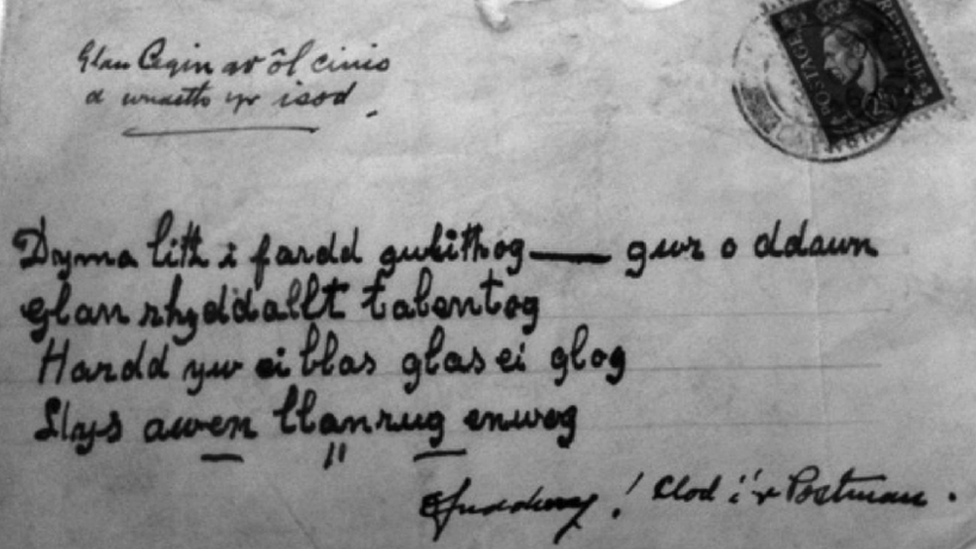 Glan Cegin ar ôl cinio
a wnaeth yr isod.
POSTAGE REVENUE
Dyma lith i fardd gwlithog — gwr o ddawn
glan rhyddallt talentog
Hardd yw ei blas glas ei glog
Llys awen llanrug enwog
! Clod i'r Postman.